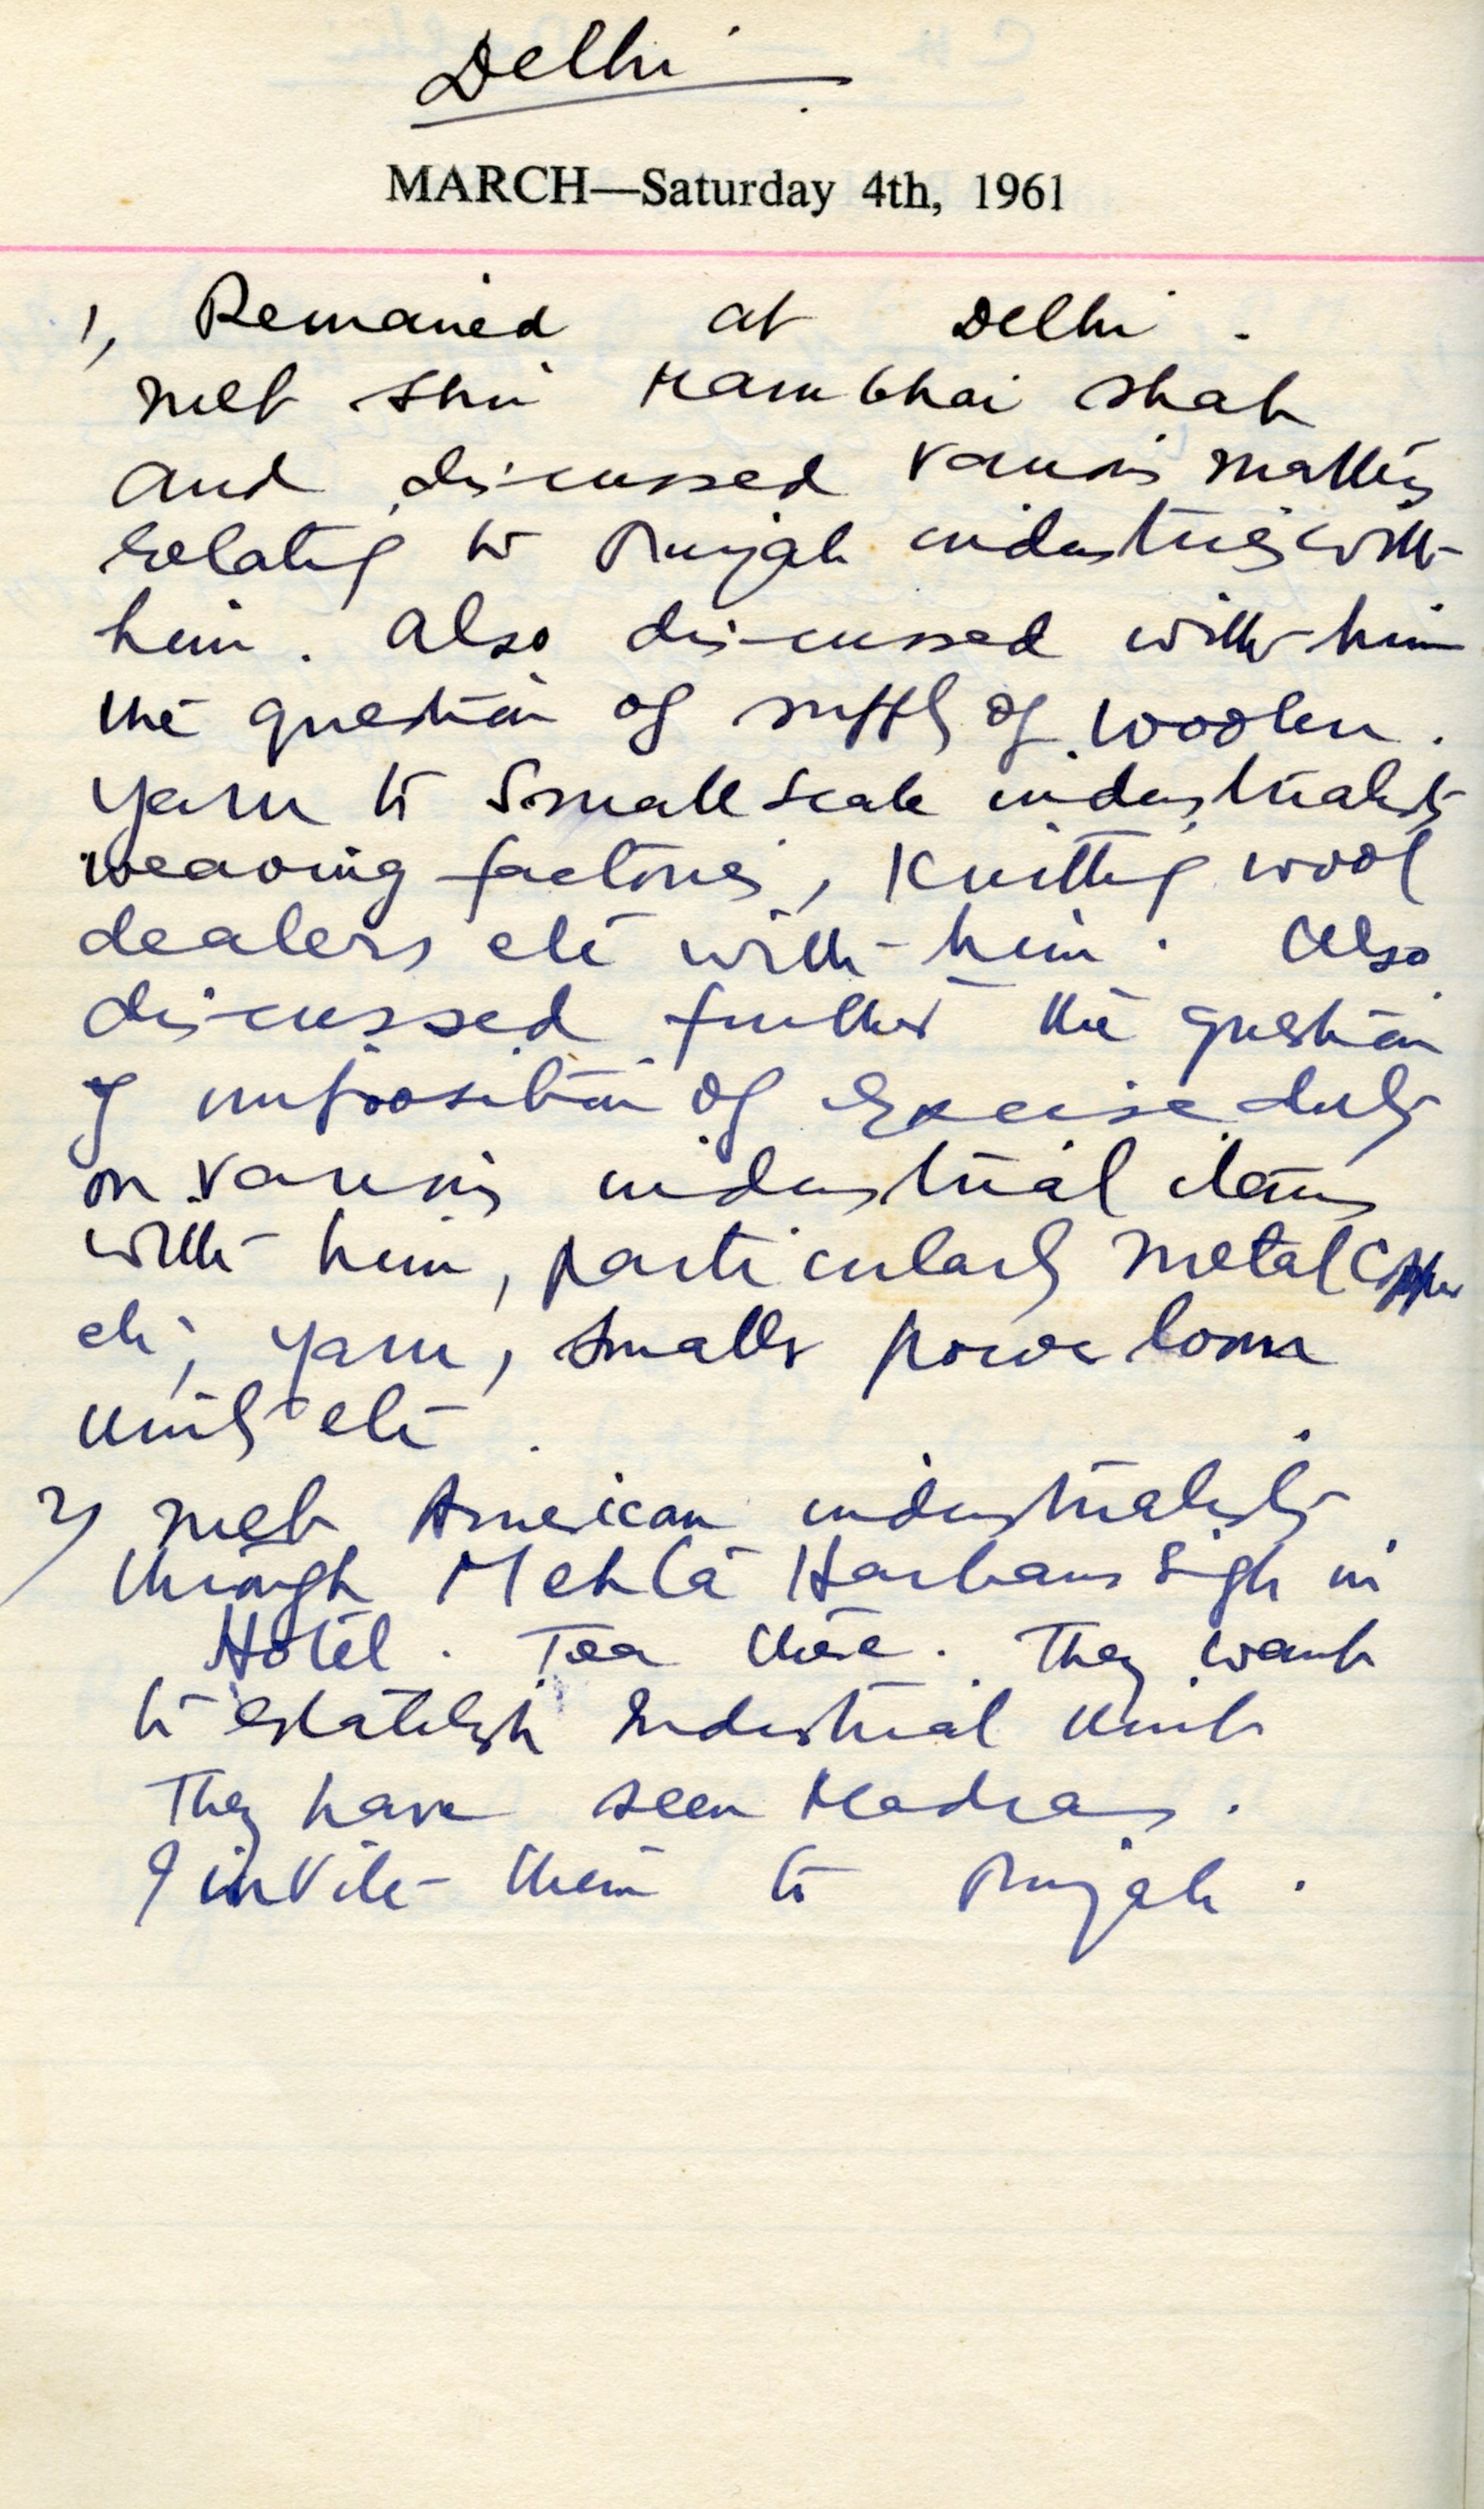 Delhi
MARCH—Saturday 4th, 1961
1, Remained at Delhi.
met Shri Manubhai Shah
and discussed various matters
relating to Punjab industries with
him. Also discussed with him
the question of supply of woolen
yarn to Small Scale industrialists
weaving factories, Knitting wool
dealers etc with him. Also
discussed further the question
of imposition of Excise duty
on various industrial items
with him, particularly metal Copper
etc, yarn, smaller power loom
units etc.
2) met American industrialists
through Mehta Harbans Singh in
Hotel. Tea there. They want
to establish Industrial Unit
They have seen Madras.
I invite them to Punjab.